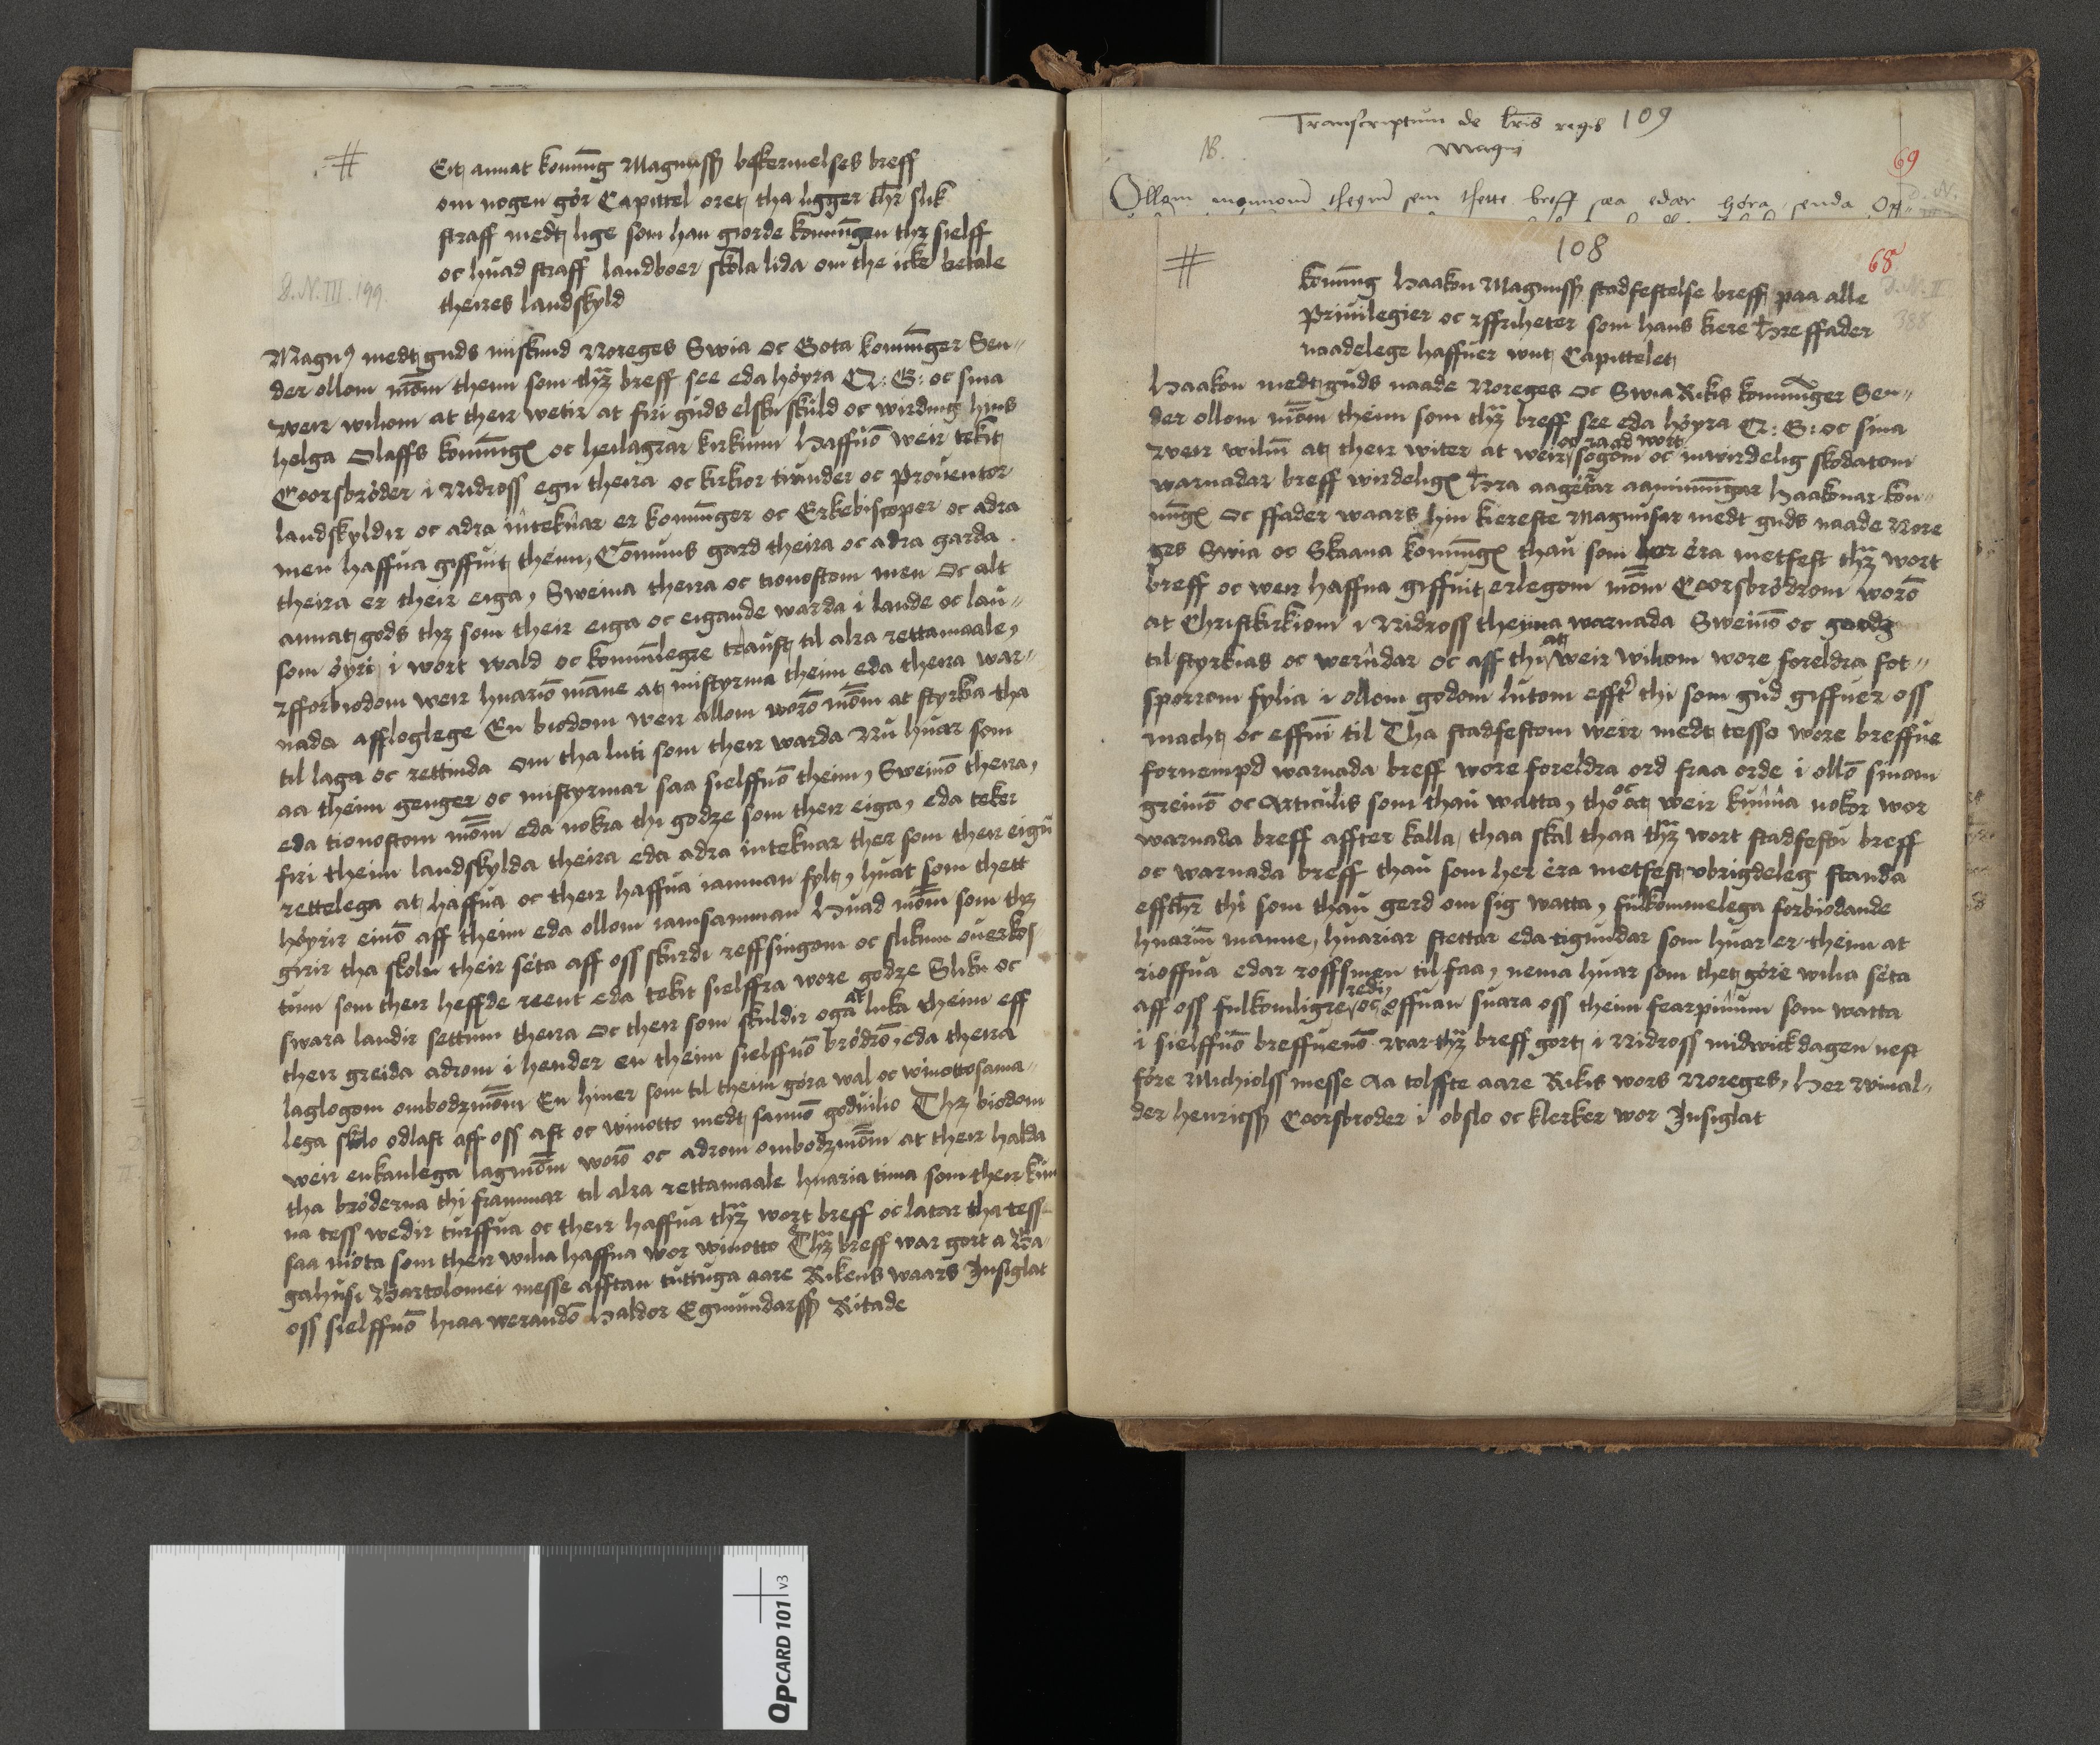 Eitt annat koning Magnussz beskermelses breff
om nogen gör Capittel oret, tha ligger ther slik
straff medt lige som han giorde koningen thz sielff
oc huad straff landboer skola lida om the icke betale
theires landskyld
D. N. III. 199.
Magn9 medt guds miskund Noreges Swia oc Gota koninger Sen-
der ollom mōm them som thz breff see eda höyra Q: G: oc sina
weir wiliom at their wetir at firi guds elsku skuld oc wirding hins
helga Olaffs koningx oc heilagrar kirkium haffuō weir tekit
Coorsbröder i Nidross egn theira oc kirkior tiunder oc Prouentor
landskyldir oc adra inteknar er koninger oc Erkebiscoper oc adra
men haffua giffuit them, Cōmuns gard theira oc adra garda
theira er their eiga, Sweina theira oc tionostom men oc alt
annat gods thz som their eiga oc eigande warda i lande oc lau-
som öyri, i wort wald oc koninlegre traust, til alra rettamaale,
Fforbiodom weir huariō māne at mistyrma theim eda theira war-
nada affloglege En biodom weir allom worō mōm at styrka tha
til laga oc rettinda om tha luti som their warda Nu huar som
aa theim genger oc mistyrmar saa sielffuō theim, Sweinō theira,
eda tionostom mōm eda nokra thi godze som their eiga, eda teker
firi theim landskylda theira eda adra inteknar ther som their eigu
rettelega at haffua oc their haffua iamnan fylt, huat som thett
höyrir einō aff theim eda ollom iamsamman Huad mōm som thz
girir tha skolu their seta aff oss skurdi reffsingom oc slikum ouerkos
tum som their heffde reent eda tekit sielffra wore godze Slikt oc
swara landir settum theira oc their som skuldir oga at luka theim eff
their greida adrom i hender en theim sielffuō brödrō, eda theira
laglogom ombodzmōm En hiner som til theim göra wal oc winottosama-
lega skolo odlast aff oss ast oc winotto medt samō goduilio Thz biodom
weir enkanlega lagmōm worō oc adrom ombodzmōm at their halda
tha bröderna thi frammar til alra rettamaale huaria tima som their kun
na tess wedir turffua oc their haffua thz wort breff oc latar tha tess
saa niota som their wilia haffua wor winotto Thz breff war gort a Ba-
gahusi Bartolomei messe afftan tuttuga aare Rikens waars Insiglat
oss sielffuō hiaa werandō Haldor Egmundarssz Ritade
Transcriptum de lris regis 109
Magni
NB.
69
Ollom monnom theym sem thette breff sea edær höra, senda
D. N.
108
68
D. N. II
388
koning Haakon Magnussz stadfestelse breff paa alle
Priuilegier oc Ffriheter som hans kiere Hre ffader
naadelege haffuer unt Capittelet
Haakon medt guds naade Noreges oc Swia Rikis koninger Sen-
der ollom mōm theim som thz breff see eda höyra Q: G: oc sina
weir wilin at their witer at weir oc raad wort sogom oc inwirdelig skodatom
warnadar breff wirdeligx Hra aagetar aaminningar Haakonar kon-
ningx oc ffader waars hin kiereste Magnusar medt guds naade Nore
ges Swia oc Skaana koningx thau som her era metfest thz wort
breff oc weir haffua giffuit erlegom mōm Coorsbrödrom worō
at Christkirkiom i Nidross theima warnada Sweinō oc
til styrkias oc werndar oc aff thi at weir wiliom wore foreldra fot-
sporrom fylia i ollom godom lutom effter thi som gud giffuer oss
macht oc effni til Tha stadfestom weir medt tesso wore breffue
fornempd warnada breff wore foreldra ord fraa orde i ollō sinom
greinō oc articulis som thau watta, tho oc at weir kunna nokor wor
warnada breff affter kalla, thaa skal thaa thz wort stadfestu breff
oc warnada breff thau som her era metfest vbrigdeleg standa
effther thi som thau gerd om sig watta, fulkommelega forbiodande
huariū manne, huariar stettar eda tigundar som huar er theim at
rioffua edar roffsmen til faa, nema huar som thet göre wilia seta
aff oss fulkomligre redi, oc offuan suara oss theim fearpinum som watta
i sielffuō breffuenō war thz breff gort i Nidross midwickdagen nest
före Michiolss messe Aa tolffte aare Rikis wors Noreges, Her Winal-
der Henricssz Coorsbroder i obslo oc klerker wor Insiglat
QpCARD 101 v3